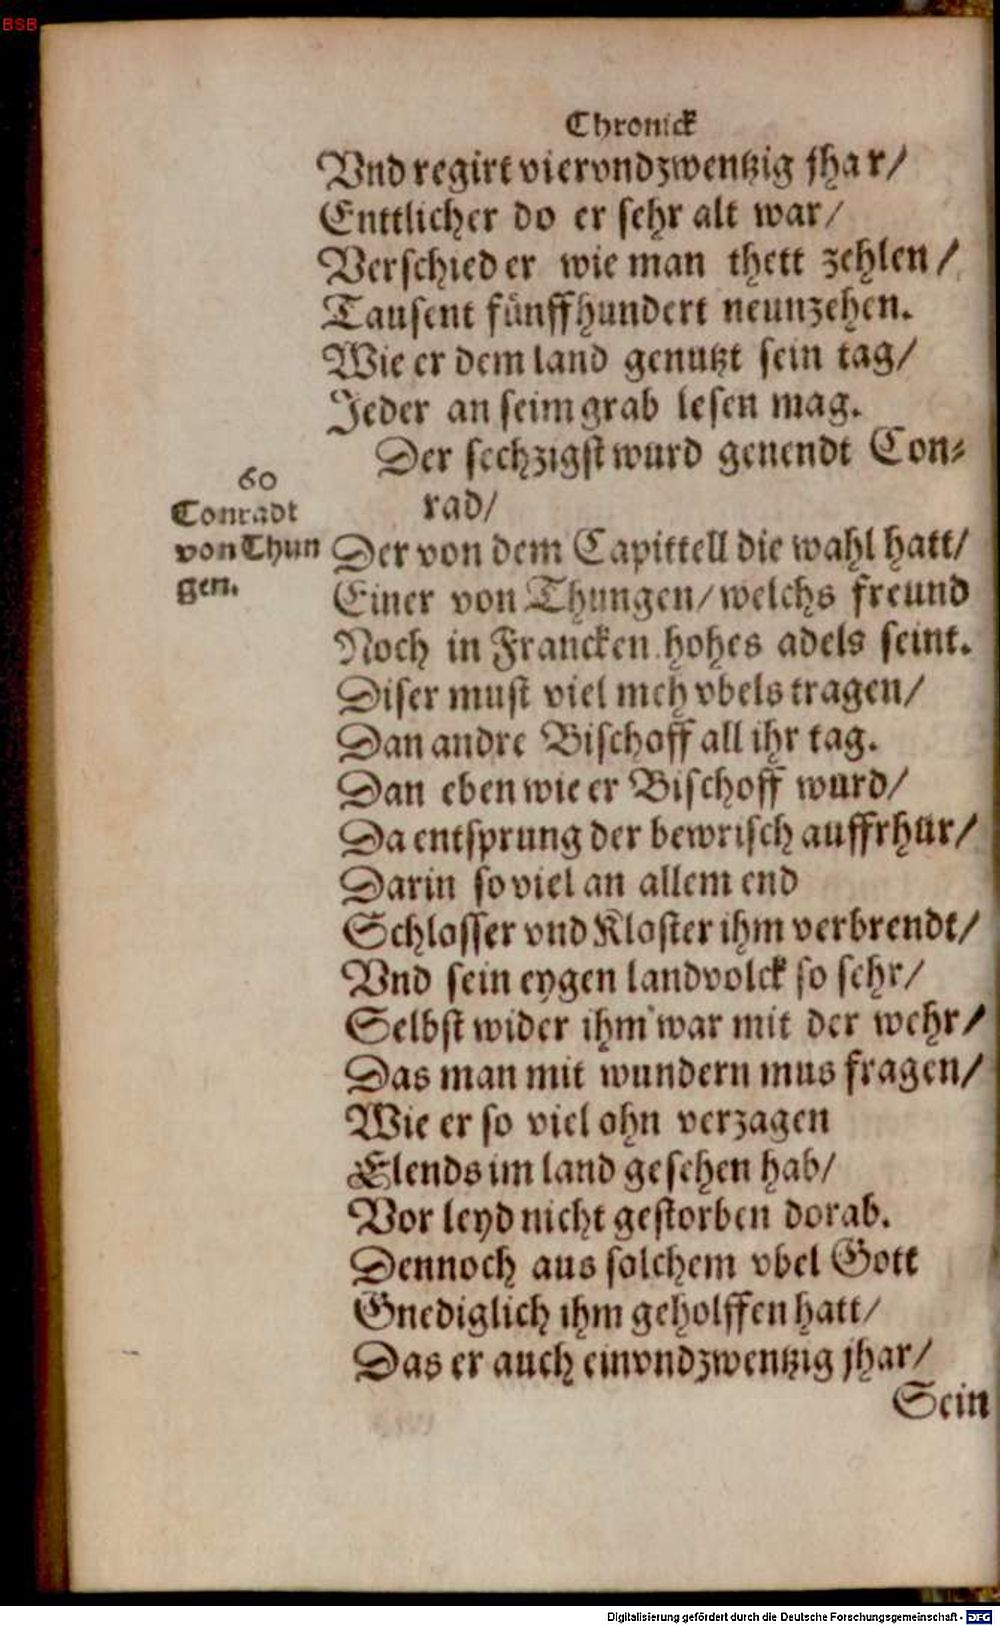 BSB
Chronick
Vnd regirt viervndzwentzig jhar/
Enttlicher do er sehr alt war/
Verschied er wie man thett zehlen/
Tausent fünffhundert neunzehen.
Wie er dem land genutzt sein tag/
Jeder an seim grab lesen mag.
Der sechzigst wurd genendt Con⸗
rad/
60
Conradt
von Thun
gen.
Der von dem Capittell die wahl hatt/
Einer von Thungen/welchs freund
Noch in Francken hohes adels seint.
Diser must viel meh vbels tragen/
Dan andre Bischoff all ihr tag.
Dan eben wie er Bischoff wurd/
Da entsprung der bewrisch auffrhur/
Darin so viel an allem end
Schlosser vnd Kloster ihm verbrendt/
Vnd sein eygen landvolck so sehr/
Selbst wider ihm war mit der wehr/
Das man mit wundern mus fragen/
Wie er so viel ohn verzagen
Elends im land gesehen hab/
Vor leyd nicht gestorben dorab.
Dennoch aus solchem vbel Gott
Gnediglich ihm geholffen hatt/
Das er auch einvndzwentzig jhar/
Sein
Digitalisierung gefördert durch die Deutsche Forschungsgemeinschaft - DFG